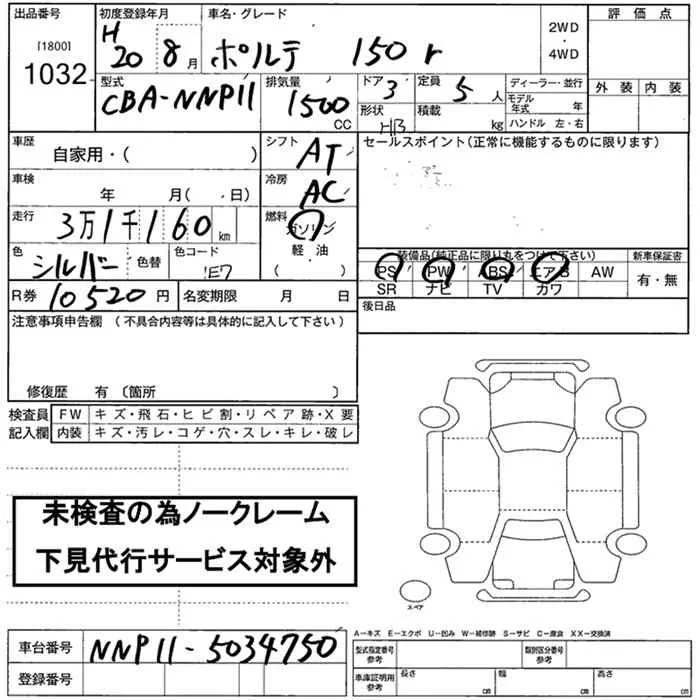 出品番号 初度登録年月 車名・グレード 2WD・4WD 評価点
[1800]
1032 H20 8月 ポルテ 150r
外装 内装
型式 排気量 ドア 定員 ディーラー・並行
CBA-NNP11 1500 CC 3 5人 モデル年式 年
形状 HB 積載 kg ハンドル 左・右
車歴 シフト セールスポイント(正常に機能するものに限ります)
自家用・( ) AT
車検 冷房
年 月( .日) AC
走行 燃料
3万1千160km ガソリン
軽・油
( )
色 シルバー 色替 色コード 1E7
装備品(純正品に限り丸をつけて下さい) 新車保証書
PS PW ABS エアB AW 有・無
SR ナビ TV カワ
R券 10520円 名変期限 月 日 後日品
注意事項申告欄(不具合内容等は具体的に記入して下さい)
修復歴 有〔箇所 〕
検査員 FW キズ・飛石・ヒビ割・リペア跡・X要
記入欄 内装 キズ・汚レ・コゲ・穴・スレ・キレ・破レ
未検査の為ノークレーム
下見代行サービス対象外
スペア
A－キズ E－エクボ U－凹み W－補修跡 S－サビ C－腐食 XX－交換済
車台番号 NNP11-5034750
型式指定番号 参考 類別区分番号 参考
登録番号
車庫証明用 参考 長さ cm 幅 cm 高さ cm